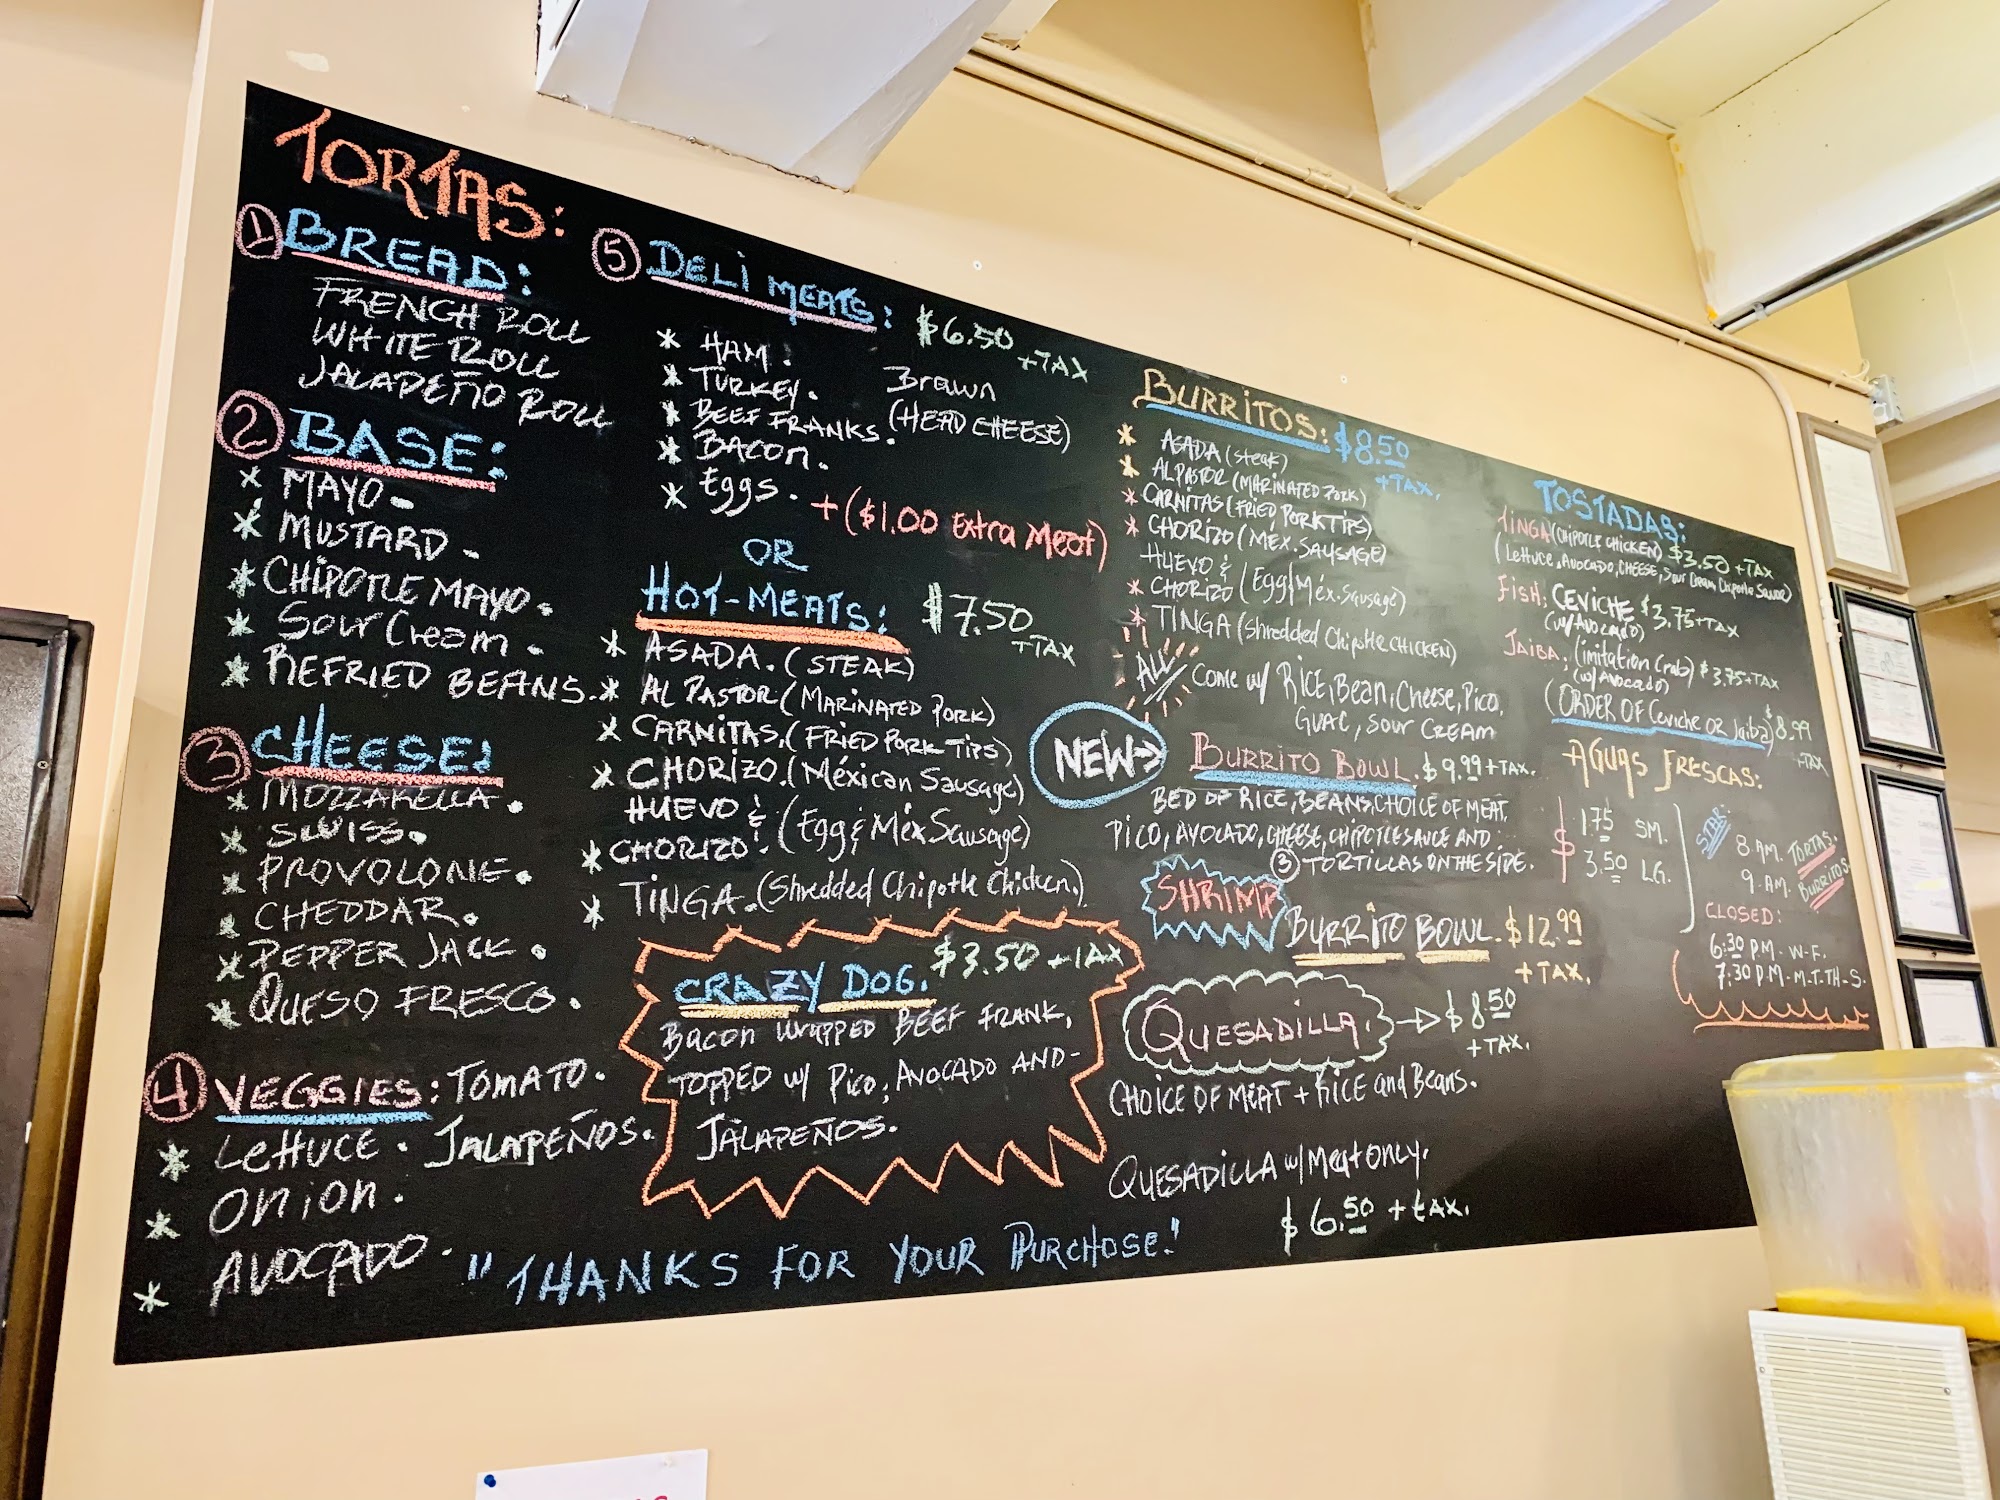 TORTAS:
① BREAD:
FRENCH ROLL
WHITE ROLL
JALAPEÑO ROLL
② BASE:
* MAYO.
* MUSTARD.
* CHIPOTLE MAYO.
* Sour Cream.
* REFRIED BEANS.
③ CHEESE:
* MOZZARELLA.
* SWISS.
* PROVOLONE.
* CHEDDAR.
* PEPPER JACK.
* QUESO FRESCO.
④ VEGGIES: TOMATO.
* LETTUCE. JALAPEÑOS.
* ONION.
* AVOCADO.
⑤ DELI MEATS: $6.50 +TAX
* HAM.
* TURKEY. Brawn
* BEEF FRANKS. (HEAD CHEESE)
* BACON.
* Eggs. + ($1.00 Extra Meat)
OR
HOT-MEATS: $7.50 +TAX
* ASADA. (STEAK)
* AL PASTOR (MARINATED PORK)
* CARNITAS. (FRIED PORK TIPS)
* CHORIZO. (Méxican Sausage)
HUEVO &
* CHORIZO. (Egg & Méx Sausage)
* TINGA. (Shredded Chipotle Chicken.)
CRAZY DOG. $3.50 +TAX
Bacon WRAPPED BEEF FRANK,
TOPPED w/ Pico, AVOCADO AND-
JALAPEÑOS.
"THANKS FOR YOUR PURCHOSE."
BURRITOS: $8.50 +TAX.
* ASADA (steak)
* AL PASTOR (MARINATED PORK)
* CARNITAS (FRIED PORK TIPS)
* CHORIZO (MÉX. SAUSAGE)
HUEVO &
* CHORIZO (Egg & Méx. Sausage)
* TINGA (Shredded Chipotle CHICKEN)
ALL COME w/ RICE, Bean, Cheese, Pico,
GUAC, SOUR CREAM
NEW→ BURRITO BOWL. $9.99 +TAX.
BED OF RICE, BEANS, CHOICE OF MEAT,
PICO, AVOCADO, CHEESE, CHIPOTLE SAUCE AND
③ TORTILLAS ON THE SIDE.
SHRIMP BURRITO BOWL. $12.99
+TAX.
QUESADILLA. → $8.50
+TAX.
CHOICE OF MEAT + RICE and Beans.
QUESADILLA w/ Meat ONLY.
$6.50 + tAX.
TOSTADAS:
TINGA (CHIPOTLE CHICKEN) $3.50 +TAX
(Lettuce, AVOCADO, CHEESE, Sour Cream Chipotle Sauce)
FISH: CEVICHE $3.75 +TAX
(w/ AVOCADO)
JAIBA: (imitation Crab) $3.75 +TAX
(w/ AVOCADO)
(ORDER OF Ceviche OR Jaiba) $8.99
+TAX
AGUAS FRESCAS:
$ 1.75 SM.
3.50 LG.
8 AM. TORTAS.
9 AM. BURRITOS
CLOSED:
6:30 PM. W-F.
7:30 PM. M.T.TH-S.